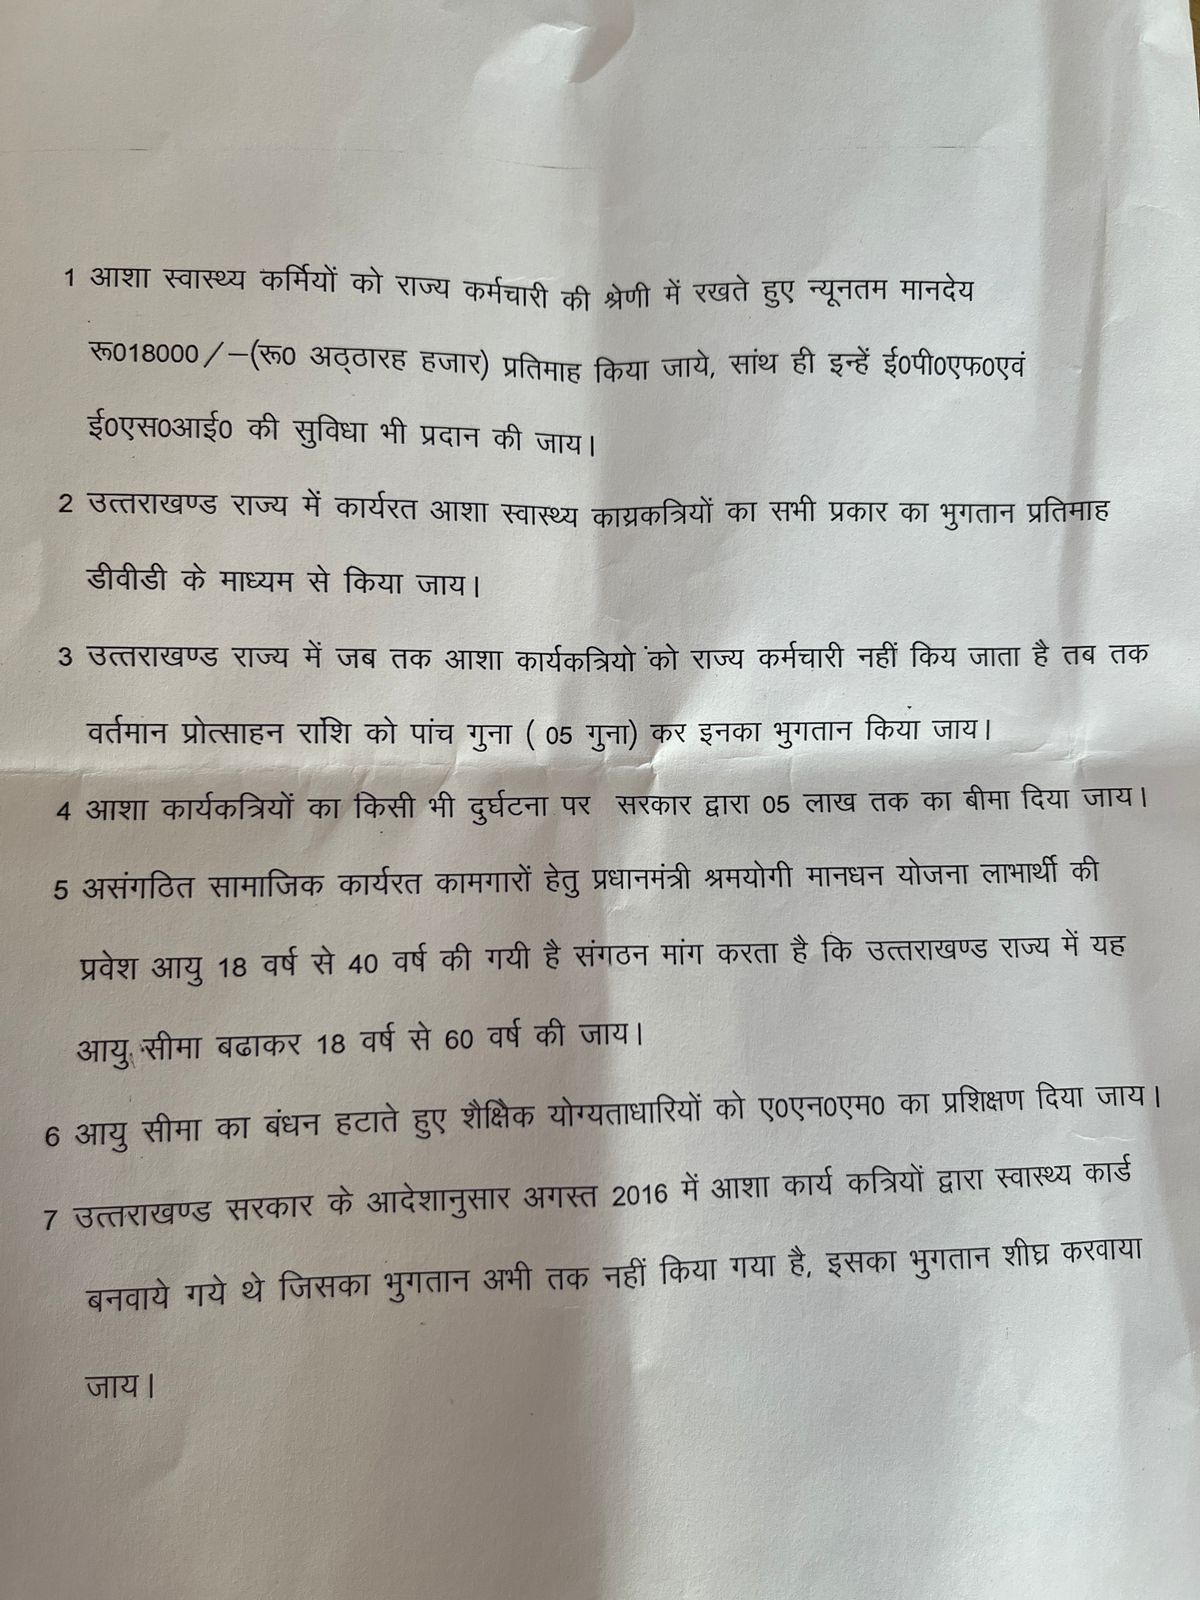 1 आशा स्वास्थ्य कर्मियों को राज्य कर्मचारी की श्रेणी में रखते हुए न्यूनतम मानदेय
रू018000/-(रू0 अठ्ठारह हजार) प्रतिमाह किया जाये, सांथ ही इन्हें ई0पी0एफ0एवं
ई0एस0आई0 की सुविधा भी प्रदान की जाय।
2 उत्तराखण्ड राज्य में कार्यरत आशा स्वास्थ्य काय्रकत्रियों का सभी प्रकार का भुगतान प्रतिमाह
डीवीडी के माध्यम से किया जाय।
3 उत्तराखण्ड राज्य में जब तक आशा कार्यकत्रियो को राज्य कर्मचारी नहीं किय जाता है तब तक
वर्तमान प्रोत्साहन राशि को पांच गुना ( 05 गुना) कर इनका भुगतान किया जाय।
4 आशा कार्यकत्रियों का किसी भी दुर्घटना पर सरकार द्वारा 05 लाख तक का बीमा दिया जाय।
5 असंगठित सामाजिक कार्यरत कामगारों हेतु प्रधानमंत्री श्रमयोगी मानधन योजना लाभार्थी की
प्रवेश आयु 18 वर्ष से 40 वर्ष की गयी है संगठन मांग करता है कि उत्तराखण्ड राज्य में यह
आयु सीमा बढाकर 18 वर्ष से 60 वर्ष की जाय।
6 आयु सीमा का बंधन हटाते हुए शैक्षिक योग्यताधारियों को ए0एन0एम0 का प्रशिक्षण दिया जाय।
7 उत्तराखण्ड सरकार के आदेशानुसार अगस्त 2016 में आशा कार्य कत्रियों द्वारा स्वास्थ्य कार्ड
बनवाये गये थे जिसका भुगतान अभी तक नहीं किया गया है, इसका भुगतान शीघ्र करवाया
जाय।